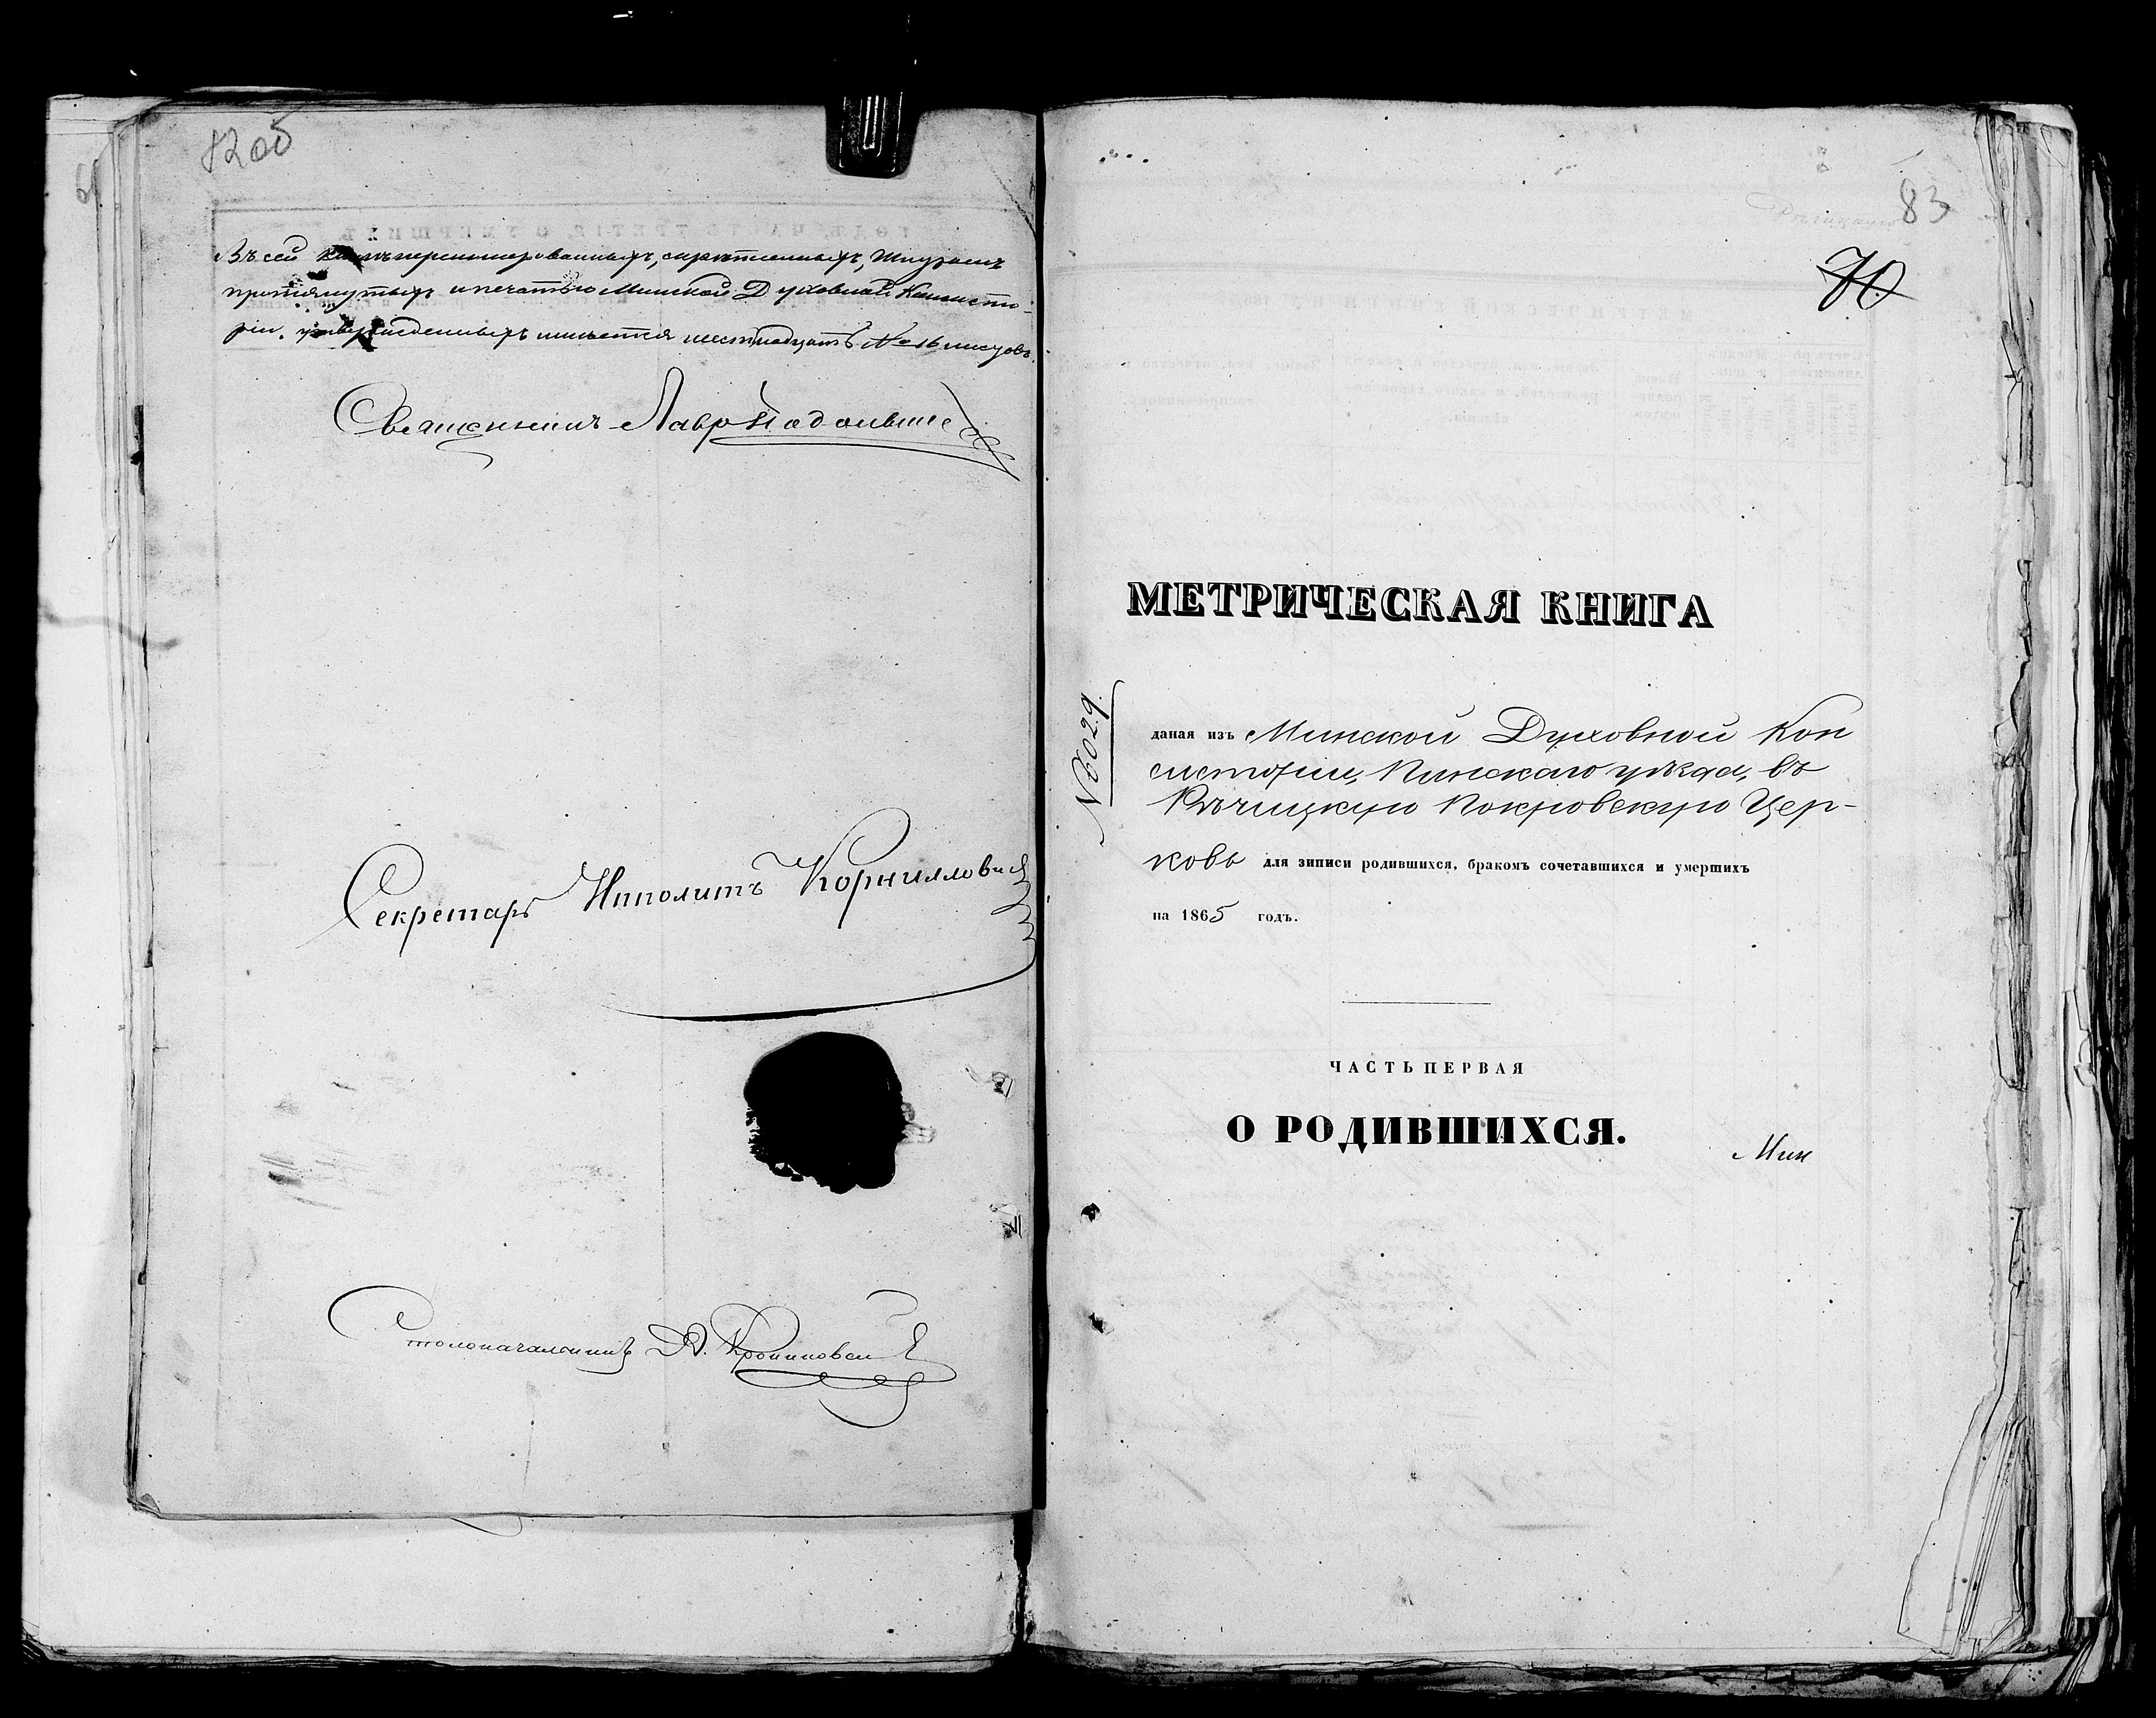 82 об
Въ сей книгѣ перенумерованныхъ, скрѣпленныхъ, шнуромъ
протянутыхъ и печатью Минской Духовной Консисто-
ріи утвержденныхъ имѣется шестнадцать № 16 листовъ.
Священникъ Лавр
Секретарь Ипполитъ Корниловичъ
Столоначальникъ
83
70
МЕТРИЧЕСКАЯ КНИГА
№ 6029.
даная изъ Минской Духовной Кон
систоріи, Пинскаго уѣзда, въ
Рѣчицкую Покровскую Цер-
ковь для зиписи родившихся, бракомъ сочетавшихся и умершихъ
на 1865 годъ.
ЧАСТЬ ПЕРВАЯ
О РОДИВШИХСЯ.
Мин